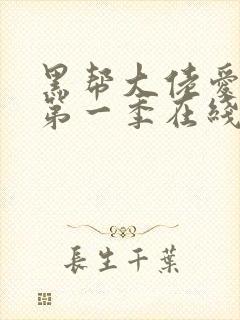 黑帮大佬爱
第一季在线
長生千葉